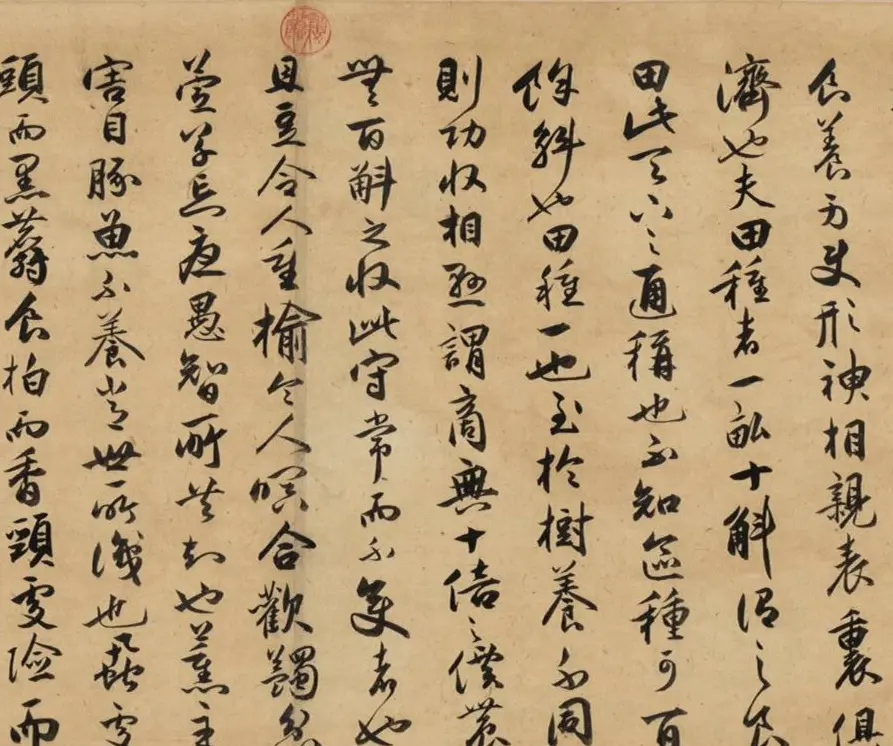 食養身使形神相親表裏俱
濟也夫田種者一畝十斛謂之良
田此天下之通稱也不知區種可百
餘斛也田種一也至於樹養不同
則功收相懸謂商無十倍之價農
無百斛之收此守常而不變者也
且豆令人重榆令人瞑合歡蠲忿
萱草忘憂愚智所共知也薰辛
害目豚魚不養常世所識也蝨處
頭而黑麝食柏而香頸處險而